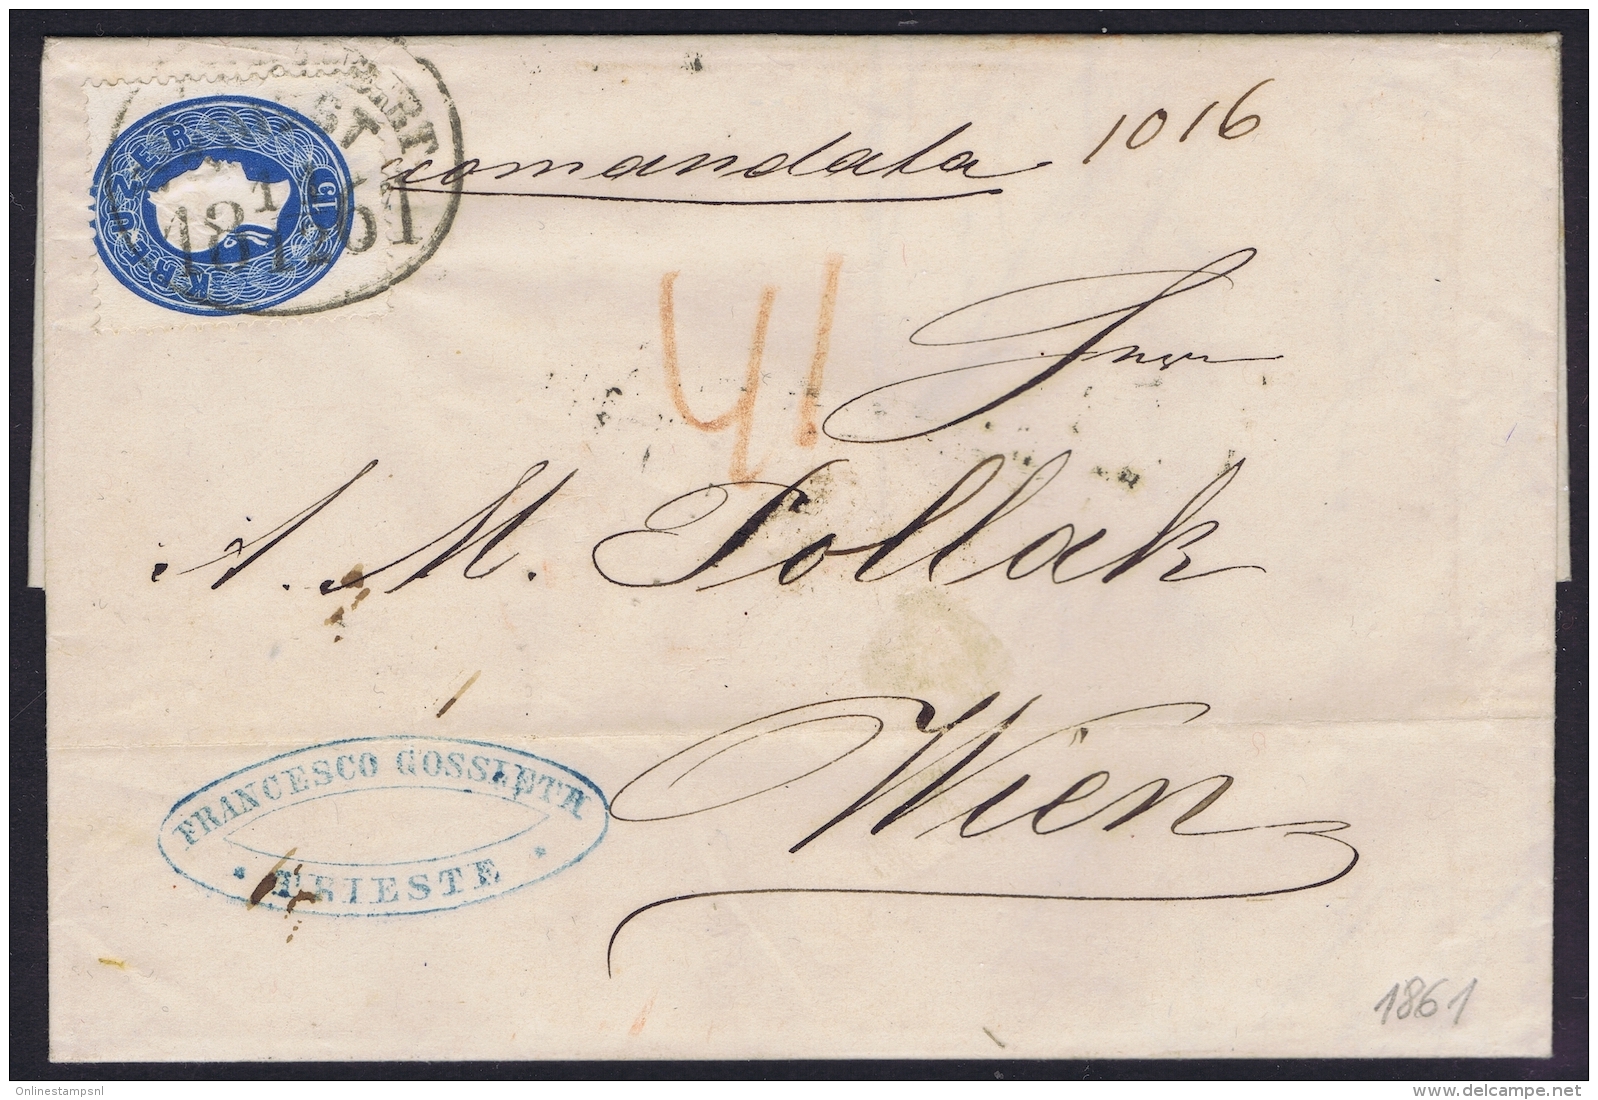 KREUZER 15
comandata 1016
41
A. M. Pollak
Wien
FRANCESCO GOSSLETH
* TRIESTE *
1861
Onlinestampsnl
www.delcampe.net